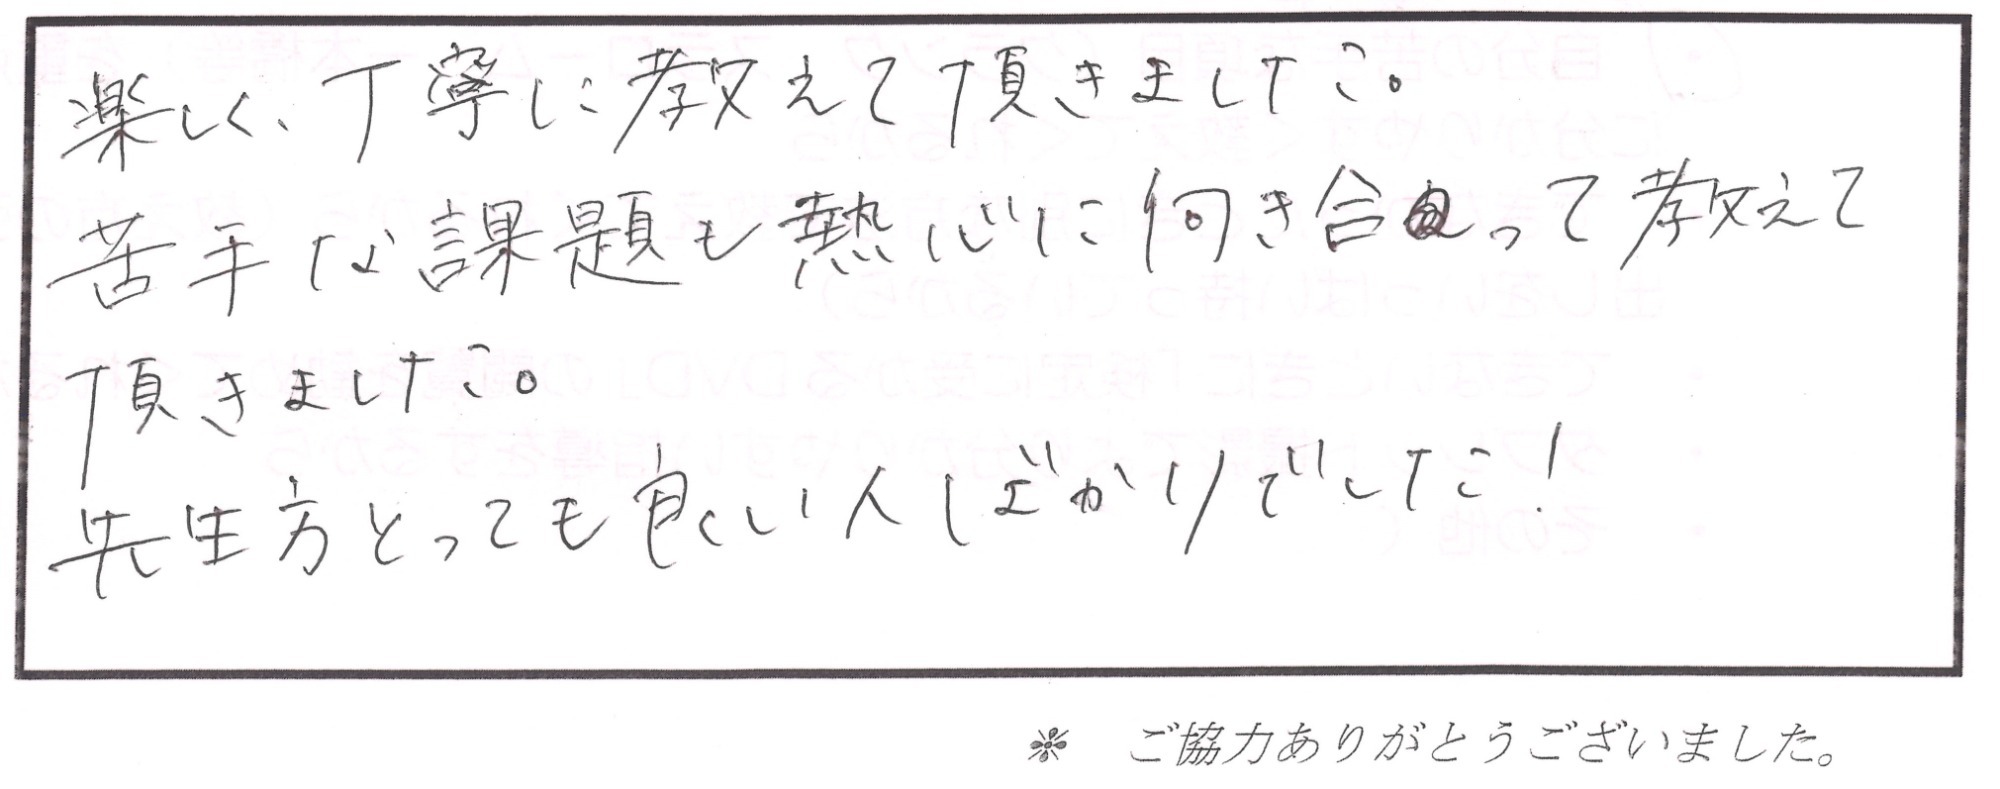 楽しく、丁寧に教えて頂きました。
苦手な課題も熱心に向き合って教えて
頂きました。
先生方とっても良い人ばかりでした!
※ ご協力ありがとうございました。